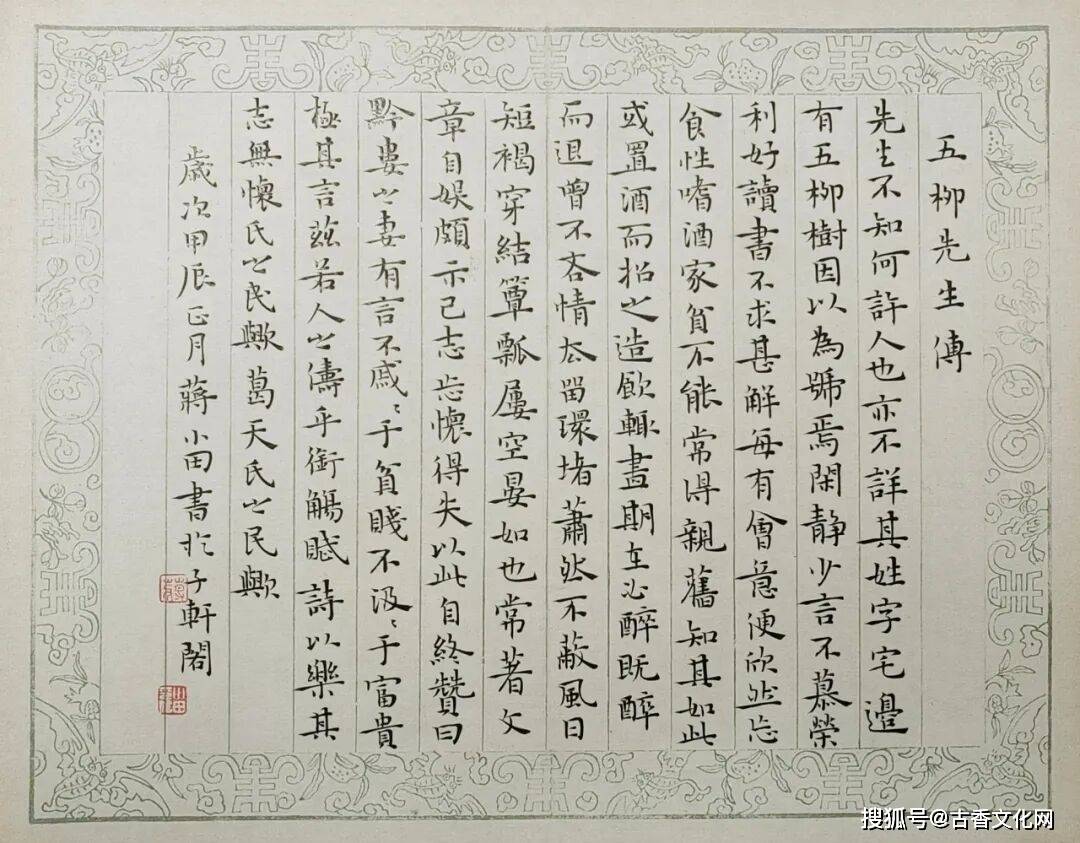 五柳先生傳
先生不知何許人也亦不詳其姓字宅邊
有五柳樹因以為號焉閑静少言不慕榮
利好讀書不求甚解每有會意便欣然忘
食性嗜酒家貧不能常得親舊知其如此
或置酒而招之造飲輒盡期在必醉既醉
而退曾不吝情去留環堵蕭然不蔽風日
短褐穿結簞瓢屢空晏如也常著文
章自娛頗示己志忘懷得失以此自終贊曰
黔婁之妻有言不戚〻于貧賤不汲〻于富貴
極其言茲若人之儔乎銜觴賦詩以樂其
志無懷氏之民歟葛天氏之民歟
歲次甲辰正月蔣小田書於子軒閣
搜狐号@古香文化网